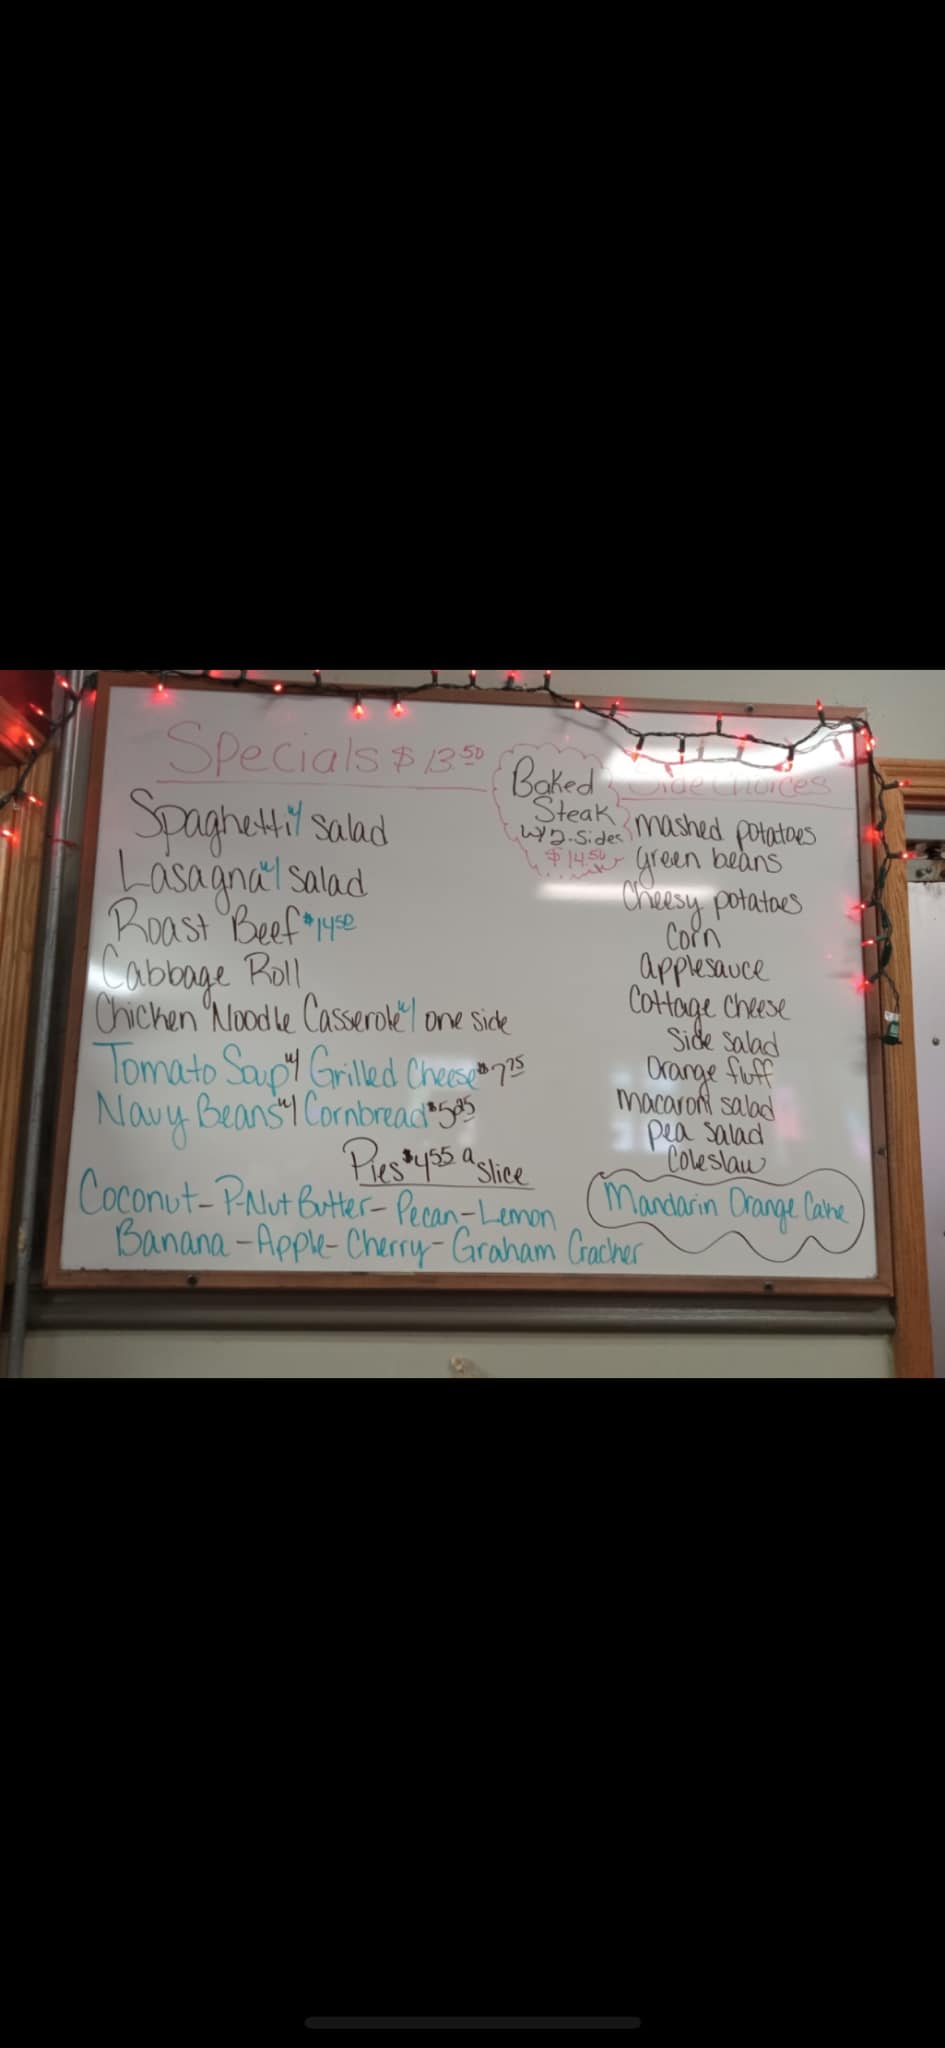 Specials $13.50
Spaghetti w/ salad
Lasagna w/ salad
Roast Beef $14.50
Cabbage Roll
Chicken Noodle Casserole w/ one side
Tomato Soup w/ Grilled Cheese $7.75
Navy Beans w/ Cornbread $5.25
Pies $4.55 a slice
Coconut - P-Nut Butter - Pecan - Lemon
Banana - Apple - Cherry - Graham Cracker
Baked
Steak
w/ 2-Sides
$14.50
Side Choices
mashed potatoes
green beans
Cheesy potatoes
Corn
applesauce
Cottage cheese
Side Salad
Orange fluff
macaroni salad
pea salad
Coleslaw
Mandarin Orange Cake